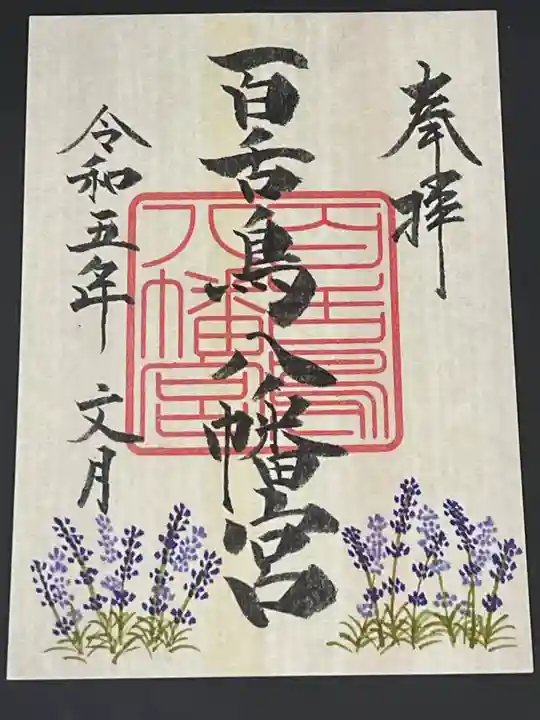 奉拝
百舌鳥八幡宮
百舌鳥
八幡宮
令和五年 文月